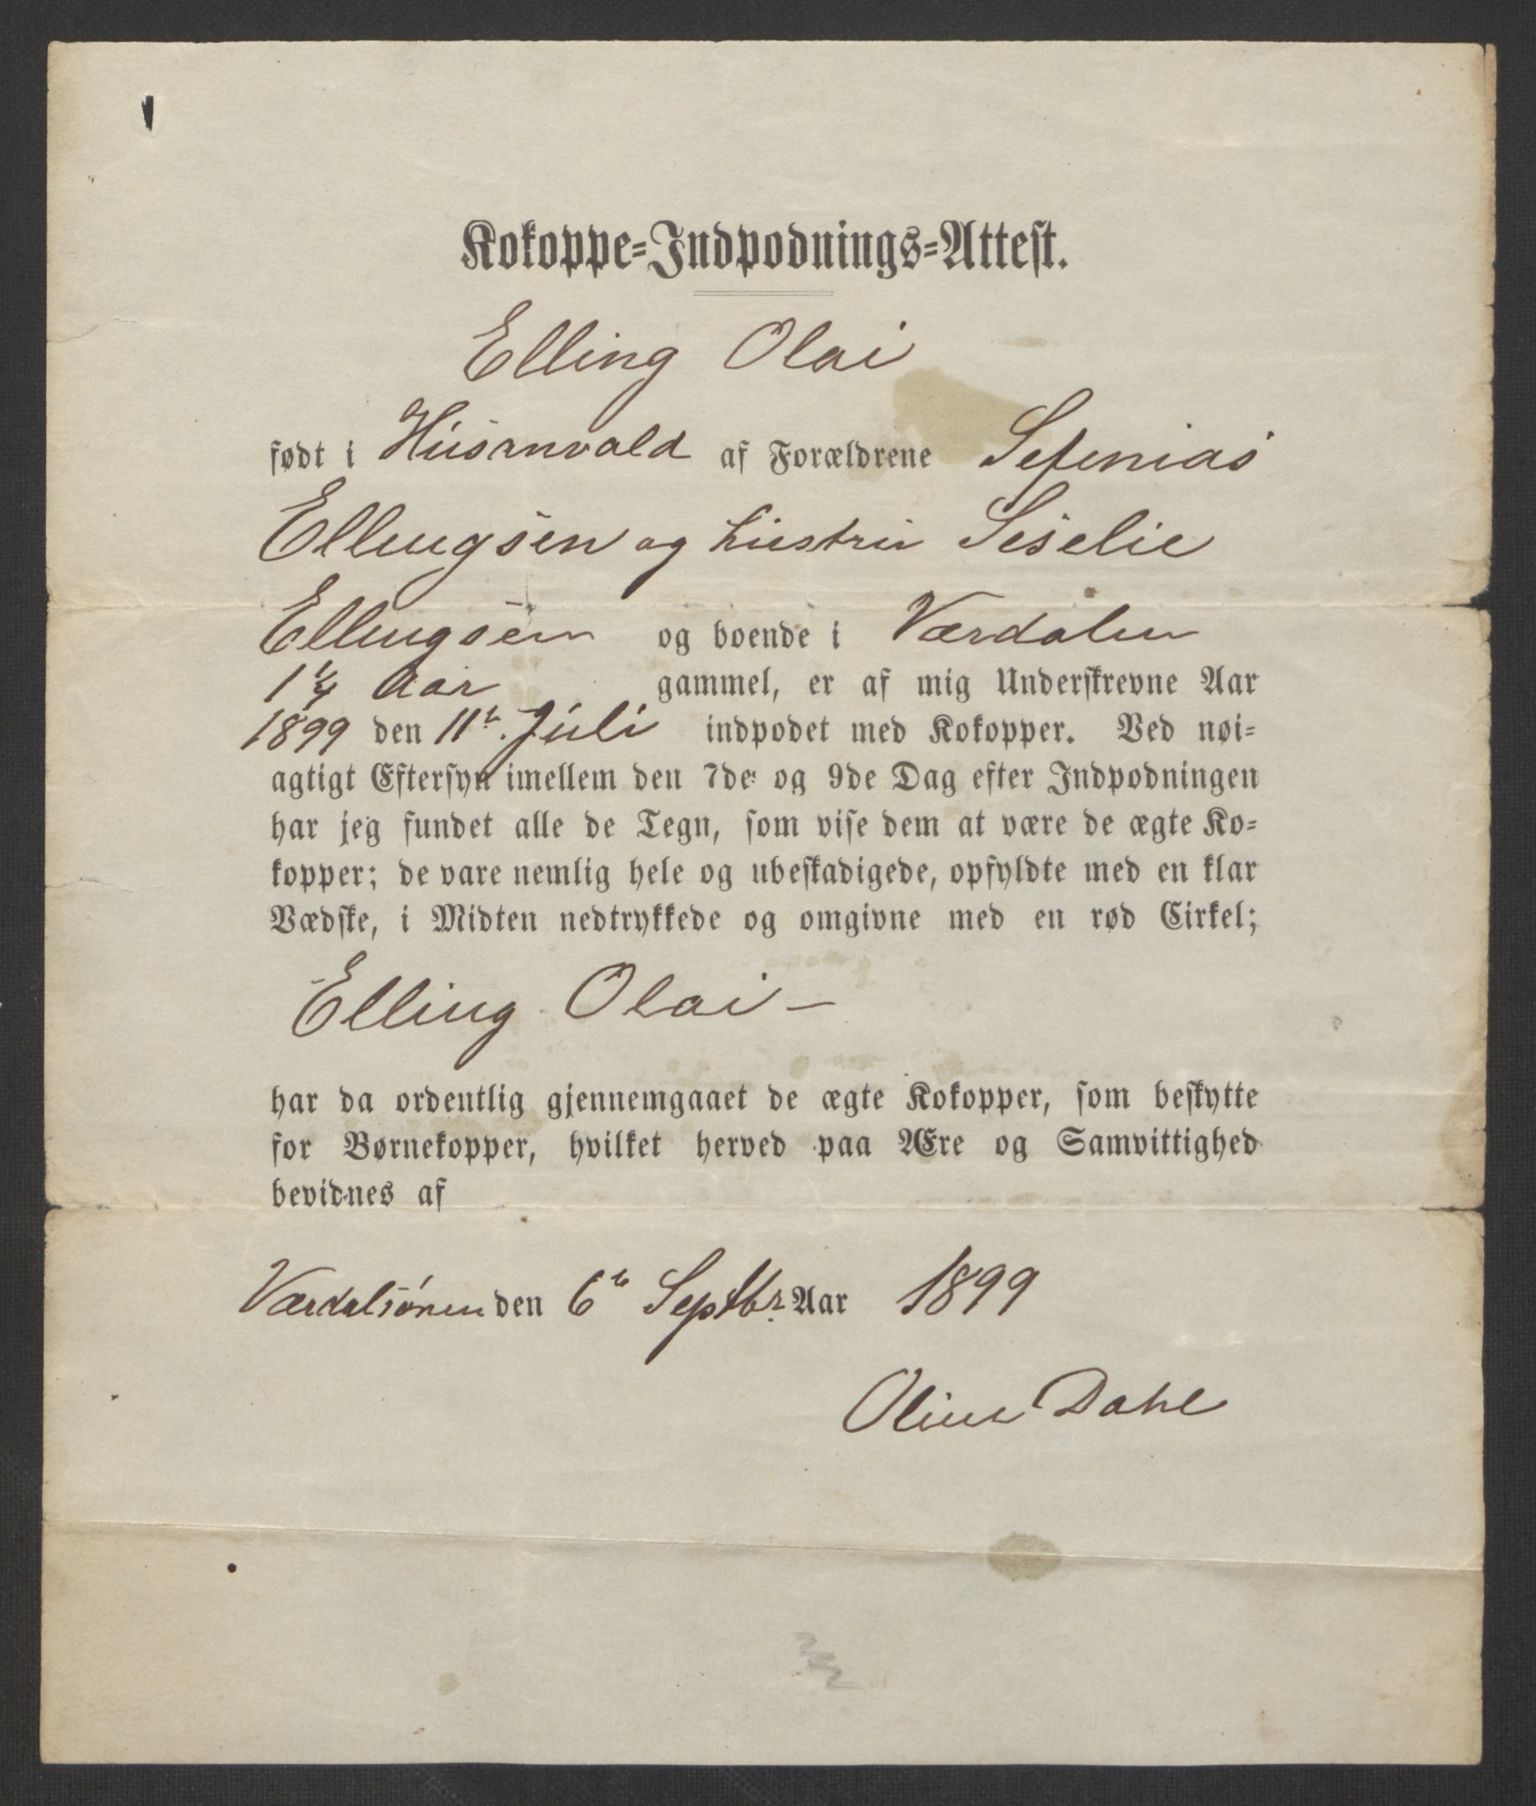 Kokoppe-Indpodnings-Attest.
Elling Olai
født i Husanvald af Forældrene Sefenias
Ellingsen og hustru Siselie
Ellingsen og boende i Værdalen
1 1/4 Aar gammel, er af mig Underskrevne Aar
1899 den 11te Juli indpodet med Kokopper. Ved nøi-
agtigt Eftersyn imellem den 7de og 9de Dag efter Indpodningen
har jeg fundet alle de Tegn, som vise dem at være de ægte Ko-
kopper; de vare nemlig hele og ubeskadigede, opfyldte med en klar
Vædske, i Midten nedtrykkede og omgivne med en rød Cirkel;
Elling Olai –
har da ordentlig gjennemgaaet de ægte Kokopper, som beskytte
for Børnekopper, hvilket herved paa Ære og Samvittighed
bevidnes af
Værdalsøren den 6te Septbr. Aar 1899
Oline Dahl